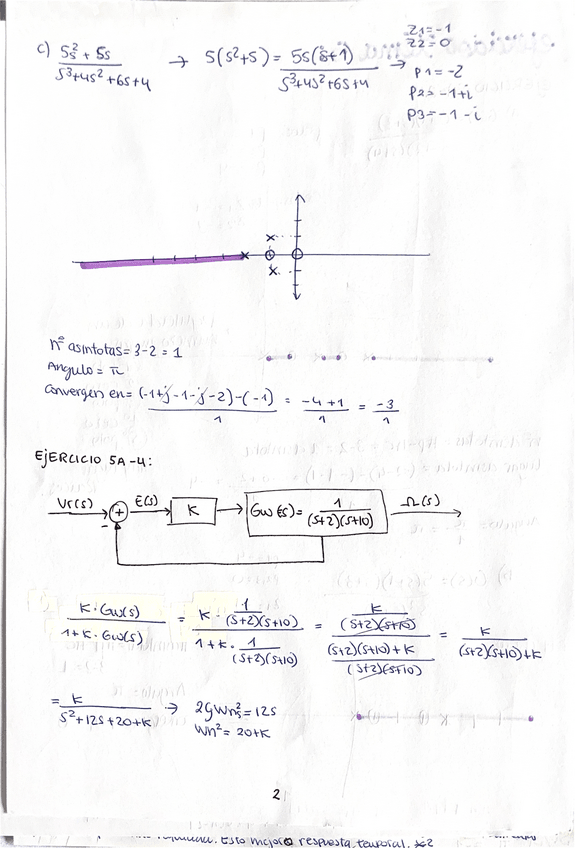 Z1=-1
Z2=0
c) 5s²+5s / s³+4s²+6s+4 → 5(s²+s) = 5s(s+1) / s³+4s²+6s+4 →
P1=-2
P2=-1+i
P3=-1-i
nº asintotas=3-2=1
Angulo=π
Convergen en= (-1+j-1-j-2)-(-1) / 1 = -4+1 / 1 = -3 / 1
EJERCICIO 5A-4:
Vr(s) + - E(s) K Gw(s)= 1 / (s+2)(s+10) Ω(s)
K·Gw(s) / 1+K·Gw(s) = K· 1 / (s+2)(s+10) / 1+K· 1 / (s+2)(s+10) = K / (s+2)(s+10) / (s+2)(s+10)+K / (s+2)(s+10) = K / (s+2)(s+10)+K
= K / s²+12s+20+K → 2ζWns=12s
Wn²=20+K
2
Esto mejora respuesta temporal.